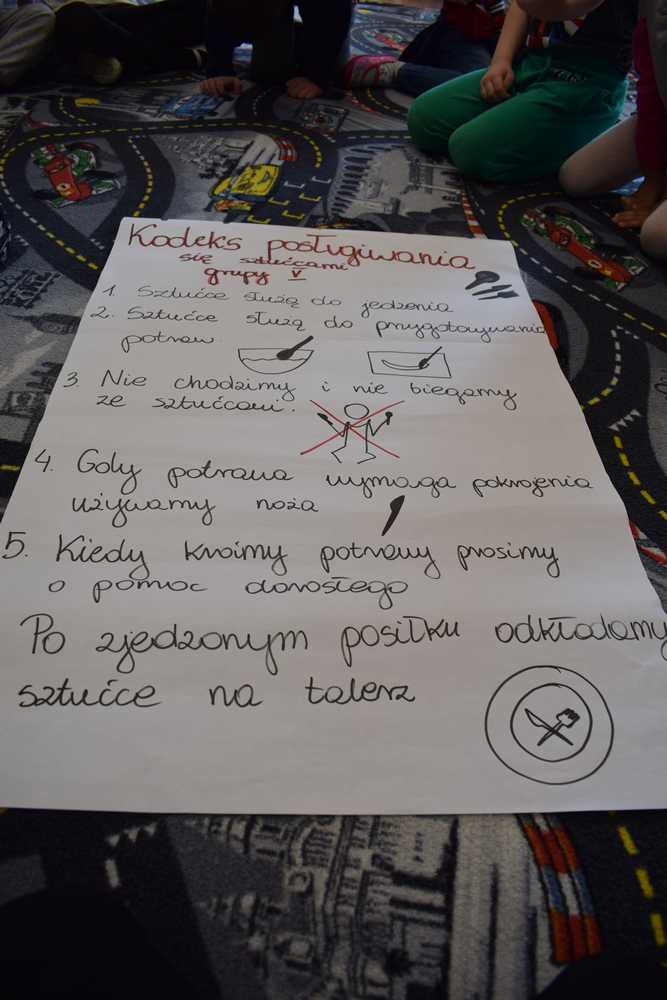 Kodeks posługiwania
się sztućcami
grupy V
1. Sztućce służą do jedzenia
2. Sztućce służą do przygotowywania
potraw.
3. Nie chodzimy i nie biegamy
ze sztućcami.
4. Gdy potrawa wymaga pokrojenia
używamy noża
5. Kiedy kroimy potrawy prosimy
o pomoc dorosłego
Po zjedzonym posiłku odkładamy
sztućce na talerz